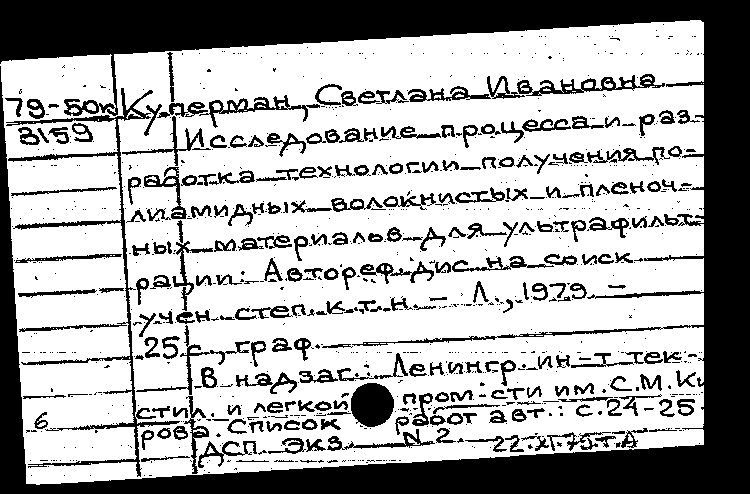 79-50к Куперман, Светлана Ивановна
3159 Исследование процесса и раз-
работка технологии получения по-
лиамидных волокнистых и пленоч-
ных материалов для ультрафильт-
рации: Автореф. дис. на соиск
учен. степ. к.т.н. - Л., 1979. -
25 с., граф.
В надзаг.: Ленингр. ин-т тек-
стил. и легкой пром-сти им. С.М. Ки
6 рова. Список работ авт.: с. 24-25
ДСП. Экз. N 2.